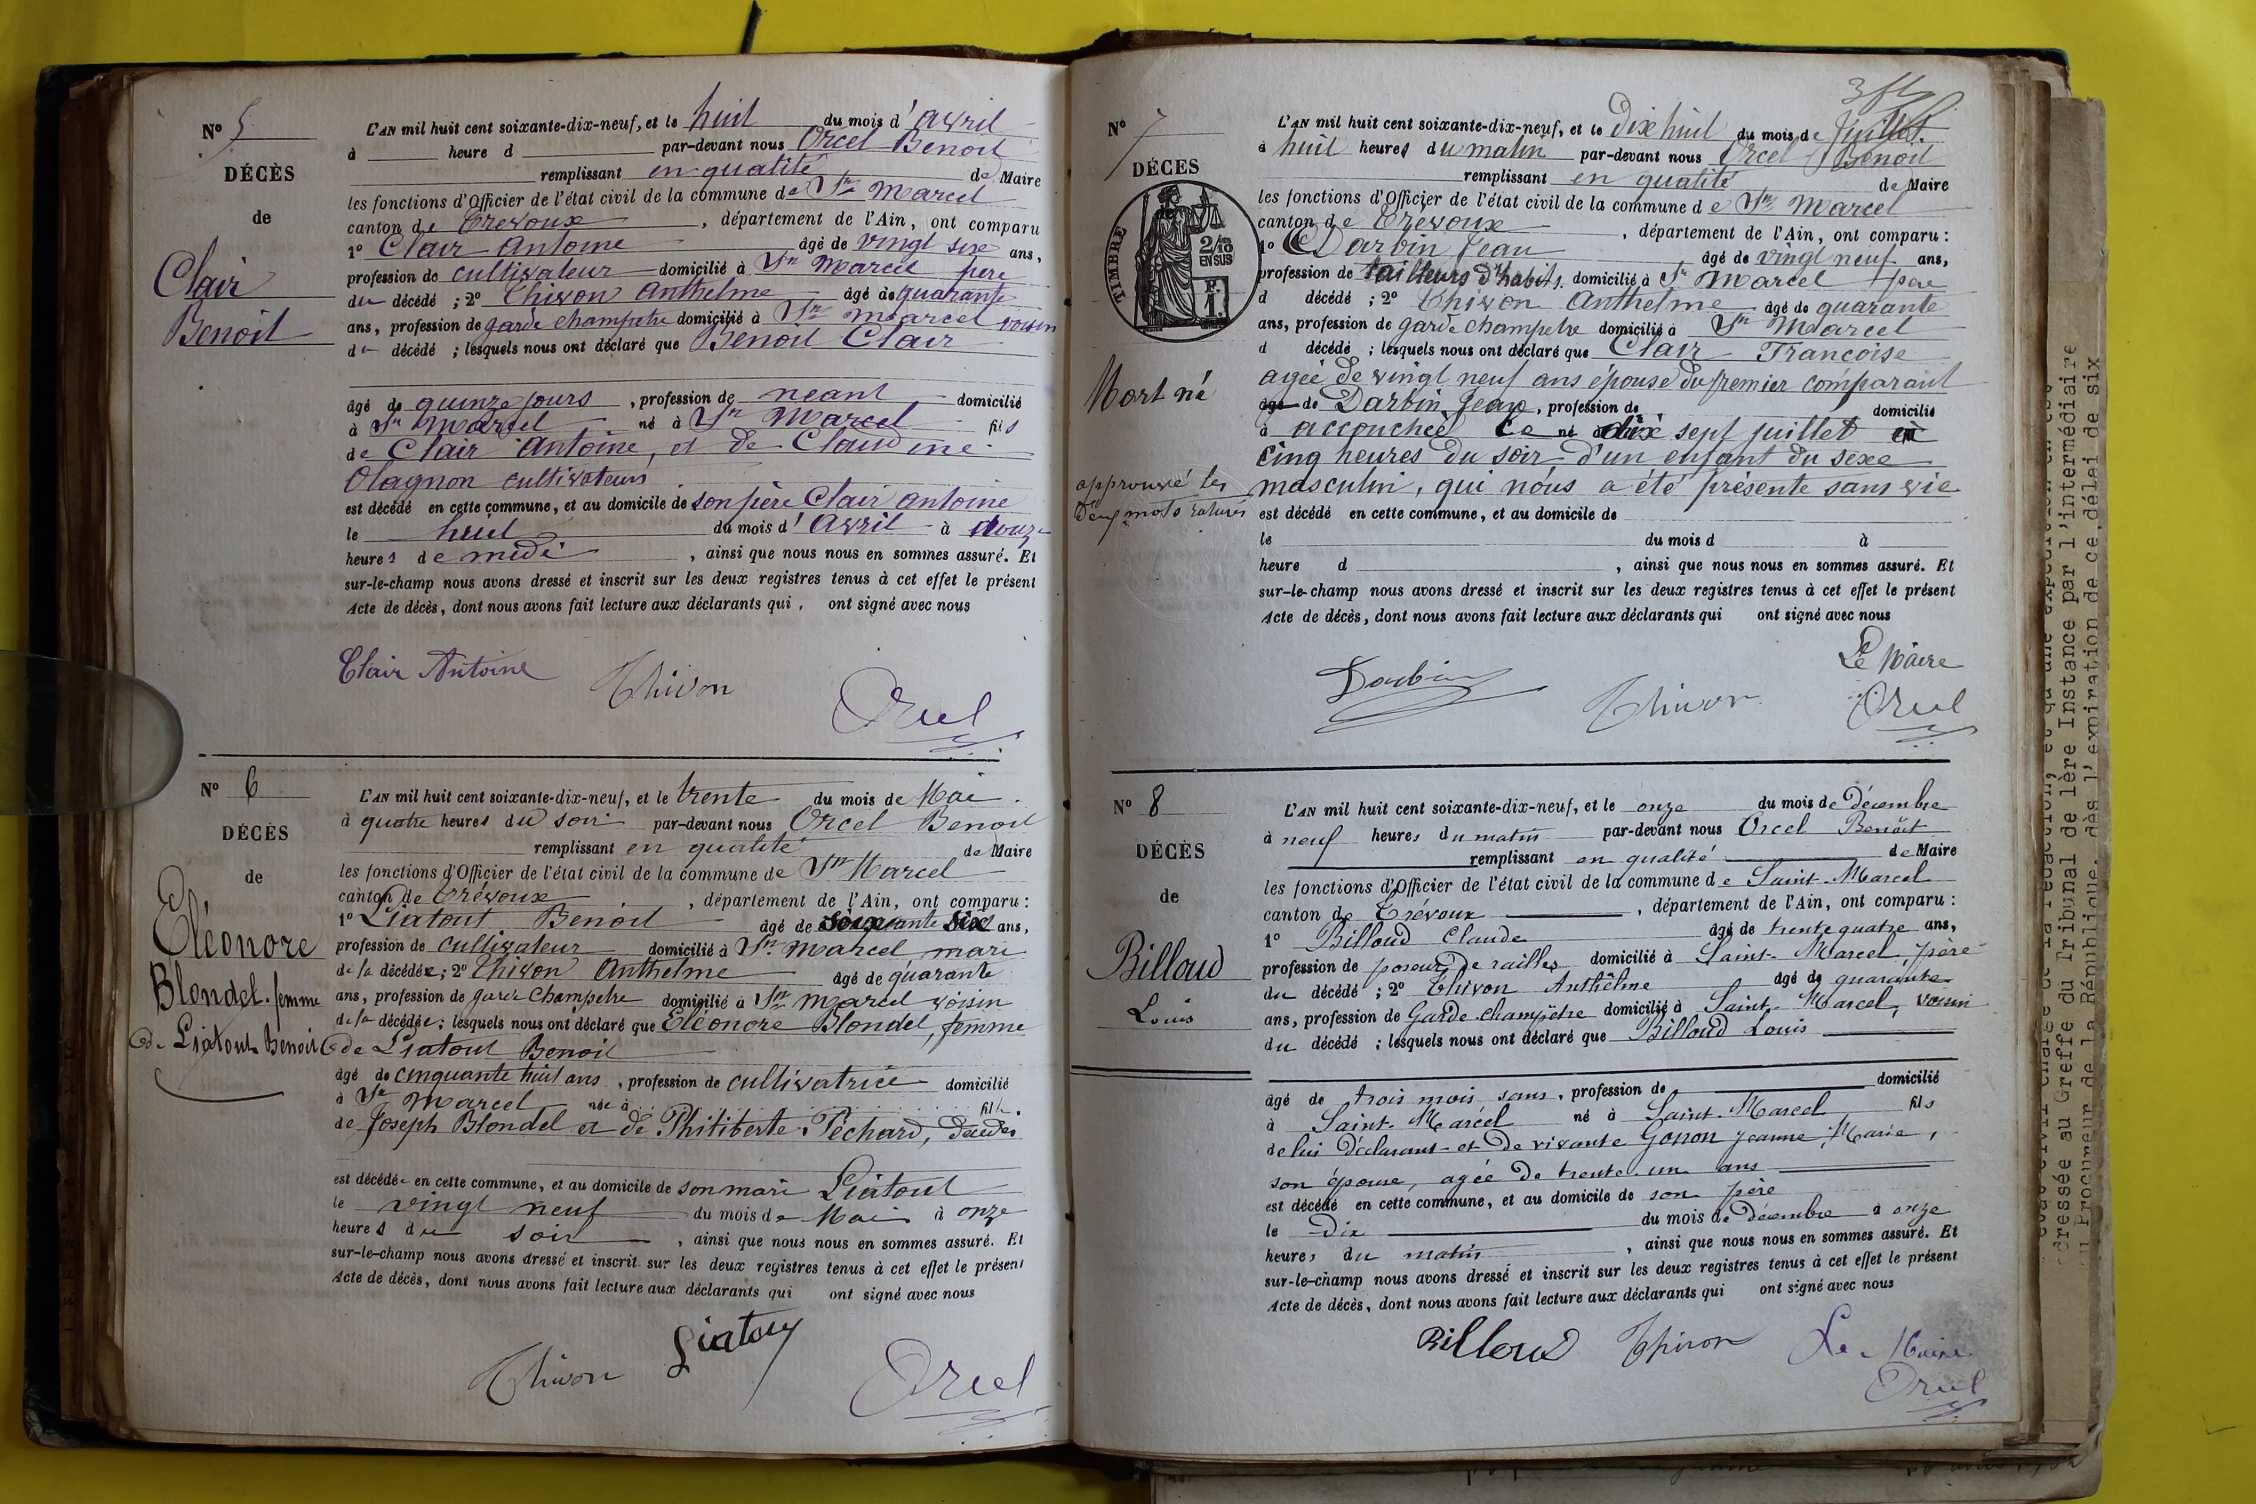 N° 5
DÉCÈS
de
Clair
Benoit
L'AN mil huit cent soixante-dix-neuf, et le huit du mois d'avril
à heure d par-devant nous Orcel Benoit
remplissant en qualité de Maire
les fonctions d'Officier de l'état civil de la commune de St Marcel
canton de Trevoux, département de l'Ain, ont comparu
1° Clair Antoine âgé de vingt six ans,
profession de cultivateur domicilié à St Marcel père
du décédé ; 2° Thivon Anthelme âgé de quarante
ans, profession de garde champetre domicilié à St Marcel voisin
du décédé ; lesquels nous ont déclaré que Benoit Clair
âgé de quinze jours, profession de neant domicilié
à St Marcel né à St Marcel fils
de Clair Antoine, et de Claudine
Olagnon cultivateurs
est décédé en cette commune, et au domicile de son père Clair Antoine
le huit du mois d'Avril à douze
heures de midi, ainsi que nous nous en sommes assuré. Et
sur-le-champ nous avons dressé et inscrit sur les deux registres tenus à cet effet le présent
Acte de décès, dont nous avons fait lecture aux déclarants qui, ont signé avec nous
Clair Antoine
Thivon
Orcel
N° 6
DÉCÈS
de
Eléonore
Blondel femme
de Liatout Benoit
L'AN mil huit cent soixante-dix-neuf, et le trente du mois de Mai
à quatre heures du soir par-devant nous Orcel Benoit
remplissant en qualité de Maire
les fonctions d'Officier de l'état civil de la commune de St Marcel
canton de Trévoux, département de l'Ain, ont comparu :
1° Liatout Benoit âgé de soixante six ans,
profession de cultivateur domicilié à St Marcel, mari
de la décédée ; 2° Thivon Anthelme âgé de quarante
ans, profession de garde champetre domicilié à St Marcel voisin
de la décédée ; lesquels nous ont déclaré que Eléonore Blondel, femme
de Liatout Benoit
âgé de cinquante huit ans, profession de cultivatrice domicilié
à St Marcel née à fille
de Joseph Blondel et de Philiberte Péchard,
est décédée en cette commune, et au domicile de son mari Liatout
le vingt neuf du mois de Mai à onze
heures du soir, ainsi que nous nous en sommes assuré. Et
sur-le-champ nous avons dressé et inscrit sur les deux registres tenus à cet effet le présent
Acte de décès, dont nous avons fait lecture aux déclarants qui ont signé avec nous
Thivon
Liatout
Orcel
N° 7
DÉCÈS
TIMBRE
2/10 EN SUS
F. 1.
Mort né
approuvé les
deux mots raturés
L'AN mil huit cent soixante-dix-neuf, et le Dix huit du mois de Juillet
à huit heures du matin par-devant nous Orcel Benoit
remplissant en qualité de Maire
les fonctions d'Officier de l'état civil de la commune de St Marcel
canton de Trevoux, département de l'Ain, ont comparu :
1° Darbin Jean âgé de vingt neuf ans,
profession de tailleurs d'habits domicilié à St Marcel père
d décédé ; 2° Thivon Anthelme âgé de quarante
ans, profession de garde champetre domicilié à St Marcel
d décédé ; lesquels nous ont déclaré que Clair Francoise
agée de vingt neuf ans épouse du premier comparant
âgé de Darbin Jean, profession de domicilié
à accouchée le né à dix sept juillet
cinq heures du soir d'un enfant du sexe
masculin, qui nous a été présente sans vie
est décédé en cette commune, et au domicile de
le du mois d à
heure d, ainsi que nous nous en sommes assuré. Et
sur-le-champ nous avons dressé et inscrit sur les deux registres tenus à cet effet le présent
Acte de décès, dont nous avons fait lecture aux déclarants qui ont signé avec nous
Le Maire
Darbin
Thivon
Orcel
N° 8
DÉCÈS
de
Billoud
Louis
L'AN mil huit cent soixante-dix-neuf, et le onze du mois de décembre
à neuf heures du matin par-devant nous Orcel Benoît
remplissant en qualité de Maire
les fonctions d'Officier de l'état civil de la commune de Saint-Marcel
canton de Trévoux, département de l'Ain, ont comparu :
1° Billoud Claude âgé de trente quatre ans,
profession de poseur de railles domicilié à Saint-Marcel, père
du décédé ; 2° Thivon Anthelme âgé de quarante
ans, profession de Garde champêtre domicilié à Saint-Marcel, voisin
du décédé ; lesquels nous ont déclaré que Billoud Louis
âgé de trois mois sans, profession de domicilié
à Saint-Marcel né à Saint-Marcel fils
de lui déclarant et de vivante Gonon Jeanne Marie,
son épouse, agée de trente un ans
est décédé en cette commune, et au domicile de son père
le Dix du mois de décembre à onze
heures du matin, ainsi que nous nous en sommes assuré. Et
sur-le-champ nous avons dressé et inscrit sur les deux registres tenus à cet effet le présent
Acte de décès, dont nous avons fait lecture aux déclarants qui ont signé avec nous
Billoud
Thivon
Le Maire
Orcel
dressée au Greffe du Tribunal de 1ère Instance par l'intermédiaire
du Procureur de la République, dès l'expiration de ce délai de six